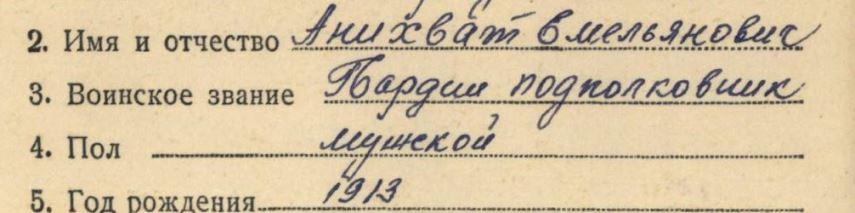 2. Имя и отчество Анихват Емельянович
3. Воинское звание Гвардии подполковник
4. Пол мужской
5. Год рождения 1913